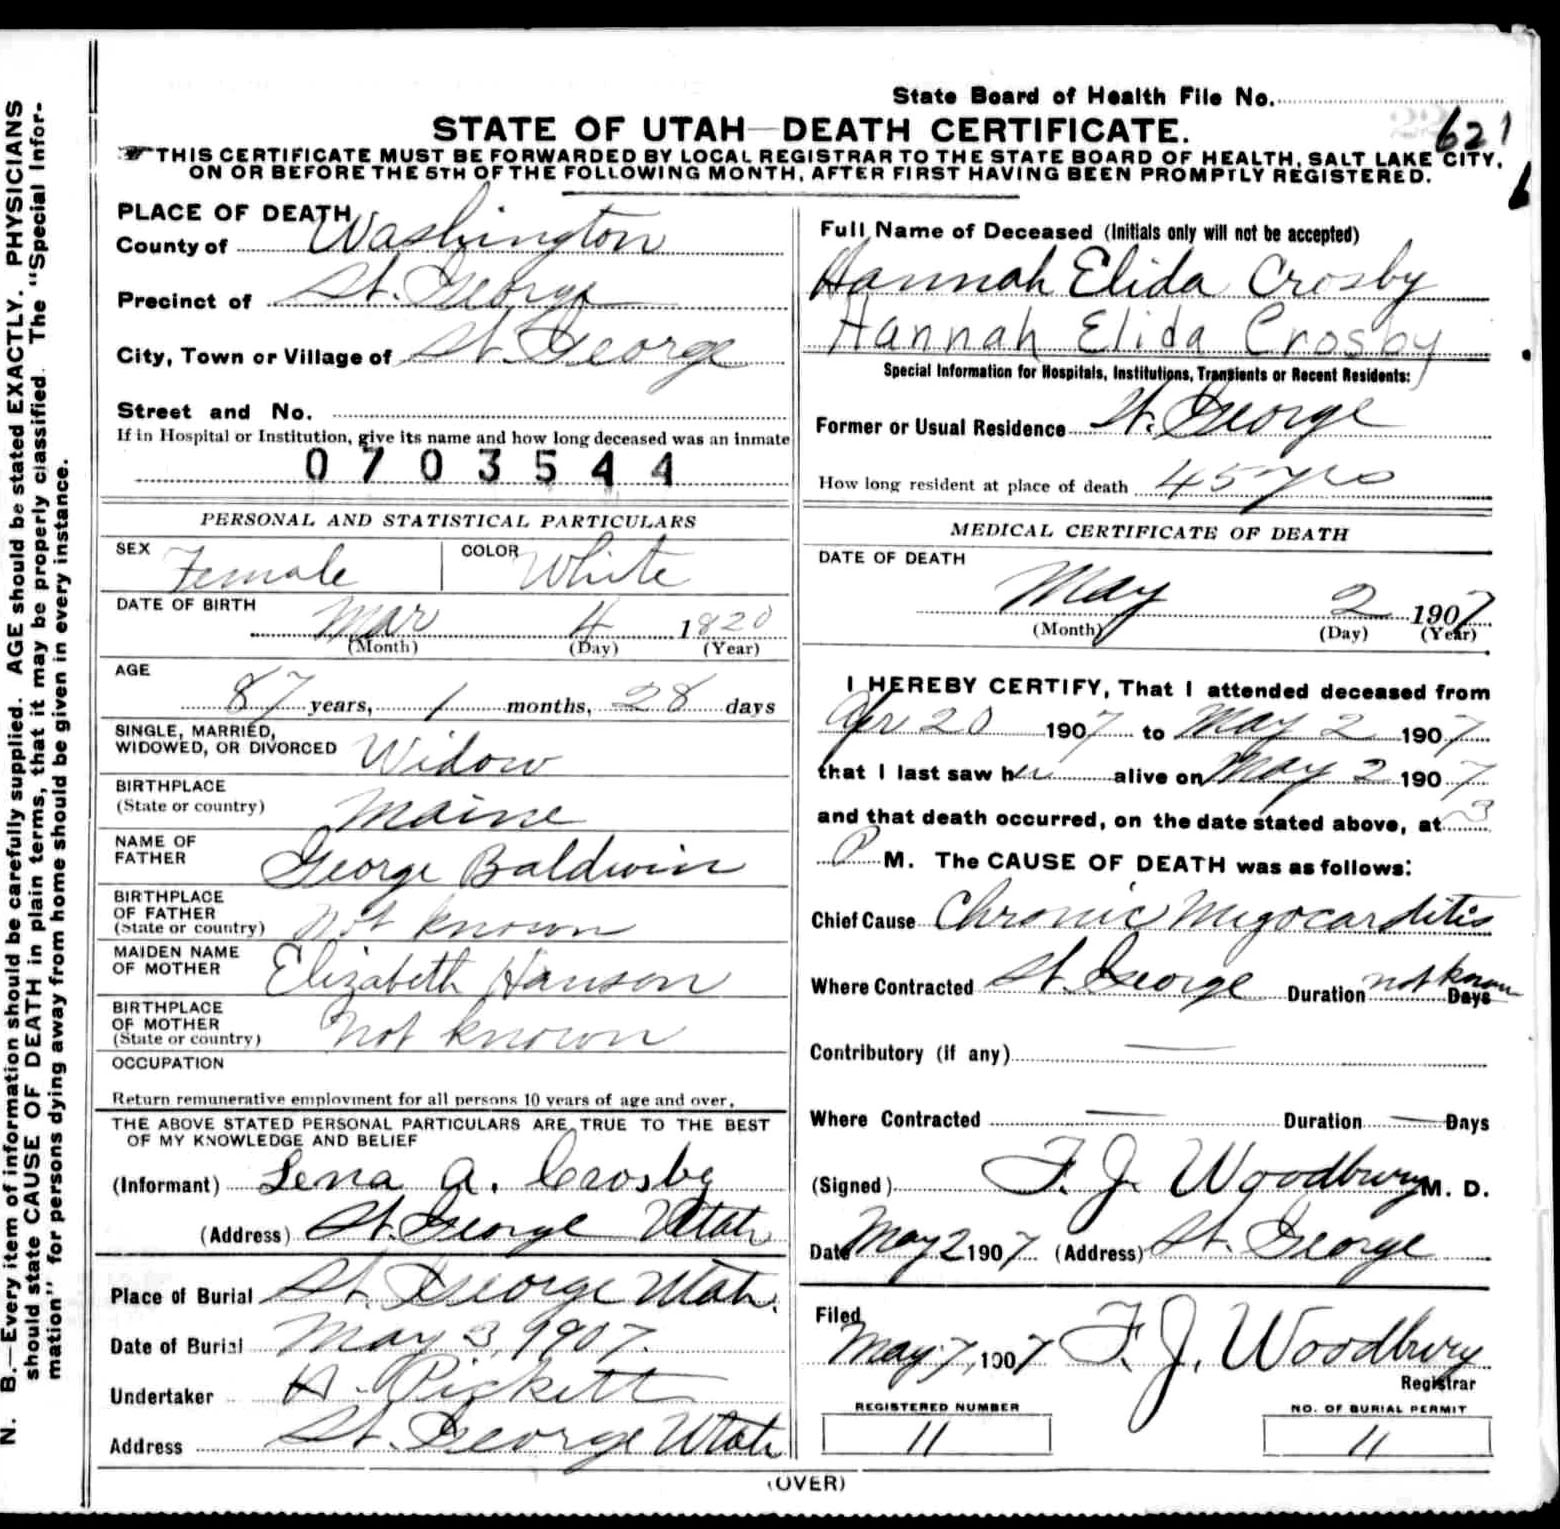 State Board of Health File No.
621
STATE OF UTAH—DEATH CERTIFICATE.
THIS CERTIFICATE MUST BE FORWARDED BY LOCAL REGISTRAR TO THE STATE BOARD OF HEALTH, SALT LAKE CITY,
ON OR BEFORE THE 5TH OF THE FOLLOWING MONTH, AFTER FIRST HAVING BEEN PROMPTLY REGISTERED.
N. B.—Every item of information should be carefully supplied. AGE should be stated EXACTLY. PHYSICIANS
should state CAUSE OF DEATH in plain terms, that it may be properly classified. The "Special Infor-
mation" for persons dying away from home should be given in every instance.
PLACE OF DEATH
County of Washington
Precinct of St. George
City, Town or Village of St. George
Street and No.
If in Hospital or Institution, give its name and how long deceased was an inmate
0703544
PERSONAL AND STATISTICAL PARTICULARS
SEX Female COLOR White
DATE OF BIRTH
Mar 4 1820
(Month) (Day) (Year)
AGE
87 years, 1 months, 28 days
SINGLE, MARRIED,
WIDOWED, OR DIVORCED Widow
BIRTHPLACE
(State or country) Maine
NAME OF
FATHER George Baldwin
BIRTHPLACE
OF FATHER
(State or country) Not known
MAIDEN NAME
OF MOTHER Elizabeth Hanson
BIRTHPLACE
OF MOTHER
(State or country) Not known
OCCUPATION
Return remunerative employment for all persons 10 years of age and over.
THE ABOVE STATED PERSONAL PARTICULARS ARE TRUE TO THE BEST
OF MY KNOWLEDGE AND BELIEF
(Informant) Lena A. Crosby
(Address) St. George Utah
Place of Burial St. George Utah.
Date of Burial May 3, 1907.
Undertaker A. Pickett
Address St. George Utah
Full Name of Deceased (Initials only will not be accepted)
Hannah Elida Crosby
Hannah Elida Crosby
Special Information for Hospitals, Institutions, Transients or Recent Residents:
Former or Usual Residence St. George
How long resident at place of death 45 yrs
MEDICAL CERTIFICATE OF DEATH
DATE OF DEATH
May 2 1907
(Month) (Day) (Year)
I HEREBY CERTIFY, That I attended deceased from
Apr 20 1907 to May 2 1907
that I last saw her alive on May 2 1907
and that death occurred, on the date stated above, at 3
P M. The CAUSE OF DEATH was as follows:
Chief Cause Chronic Myocarditis
Where Contracted St. George Duration not known Days
Contributory (if any) —
Where Contracted — Duration — Days
(Signed) F. J. Woodbury M. D.
Date May 2 1907 (Address) St. George
Filed
May 7, 1907 F. J. Woodbury
Registrar
REGISTERED NUMBER
11
NO. OF BURIAL PERMIT
11
(OVER)